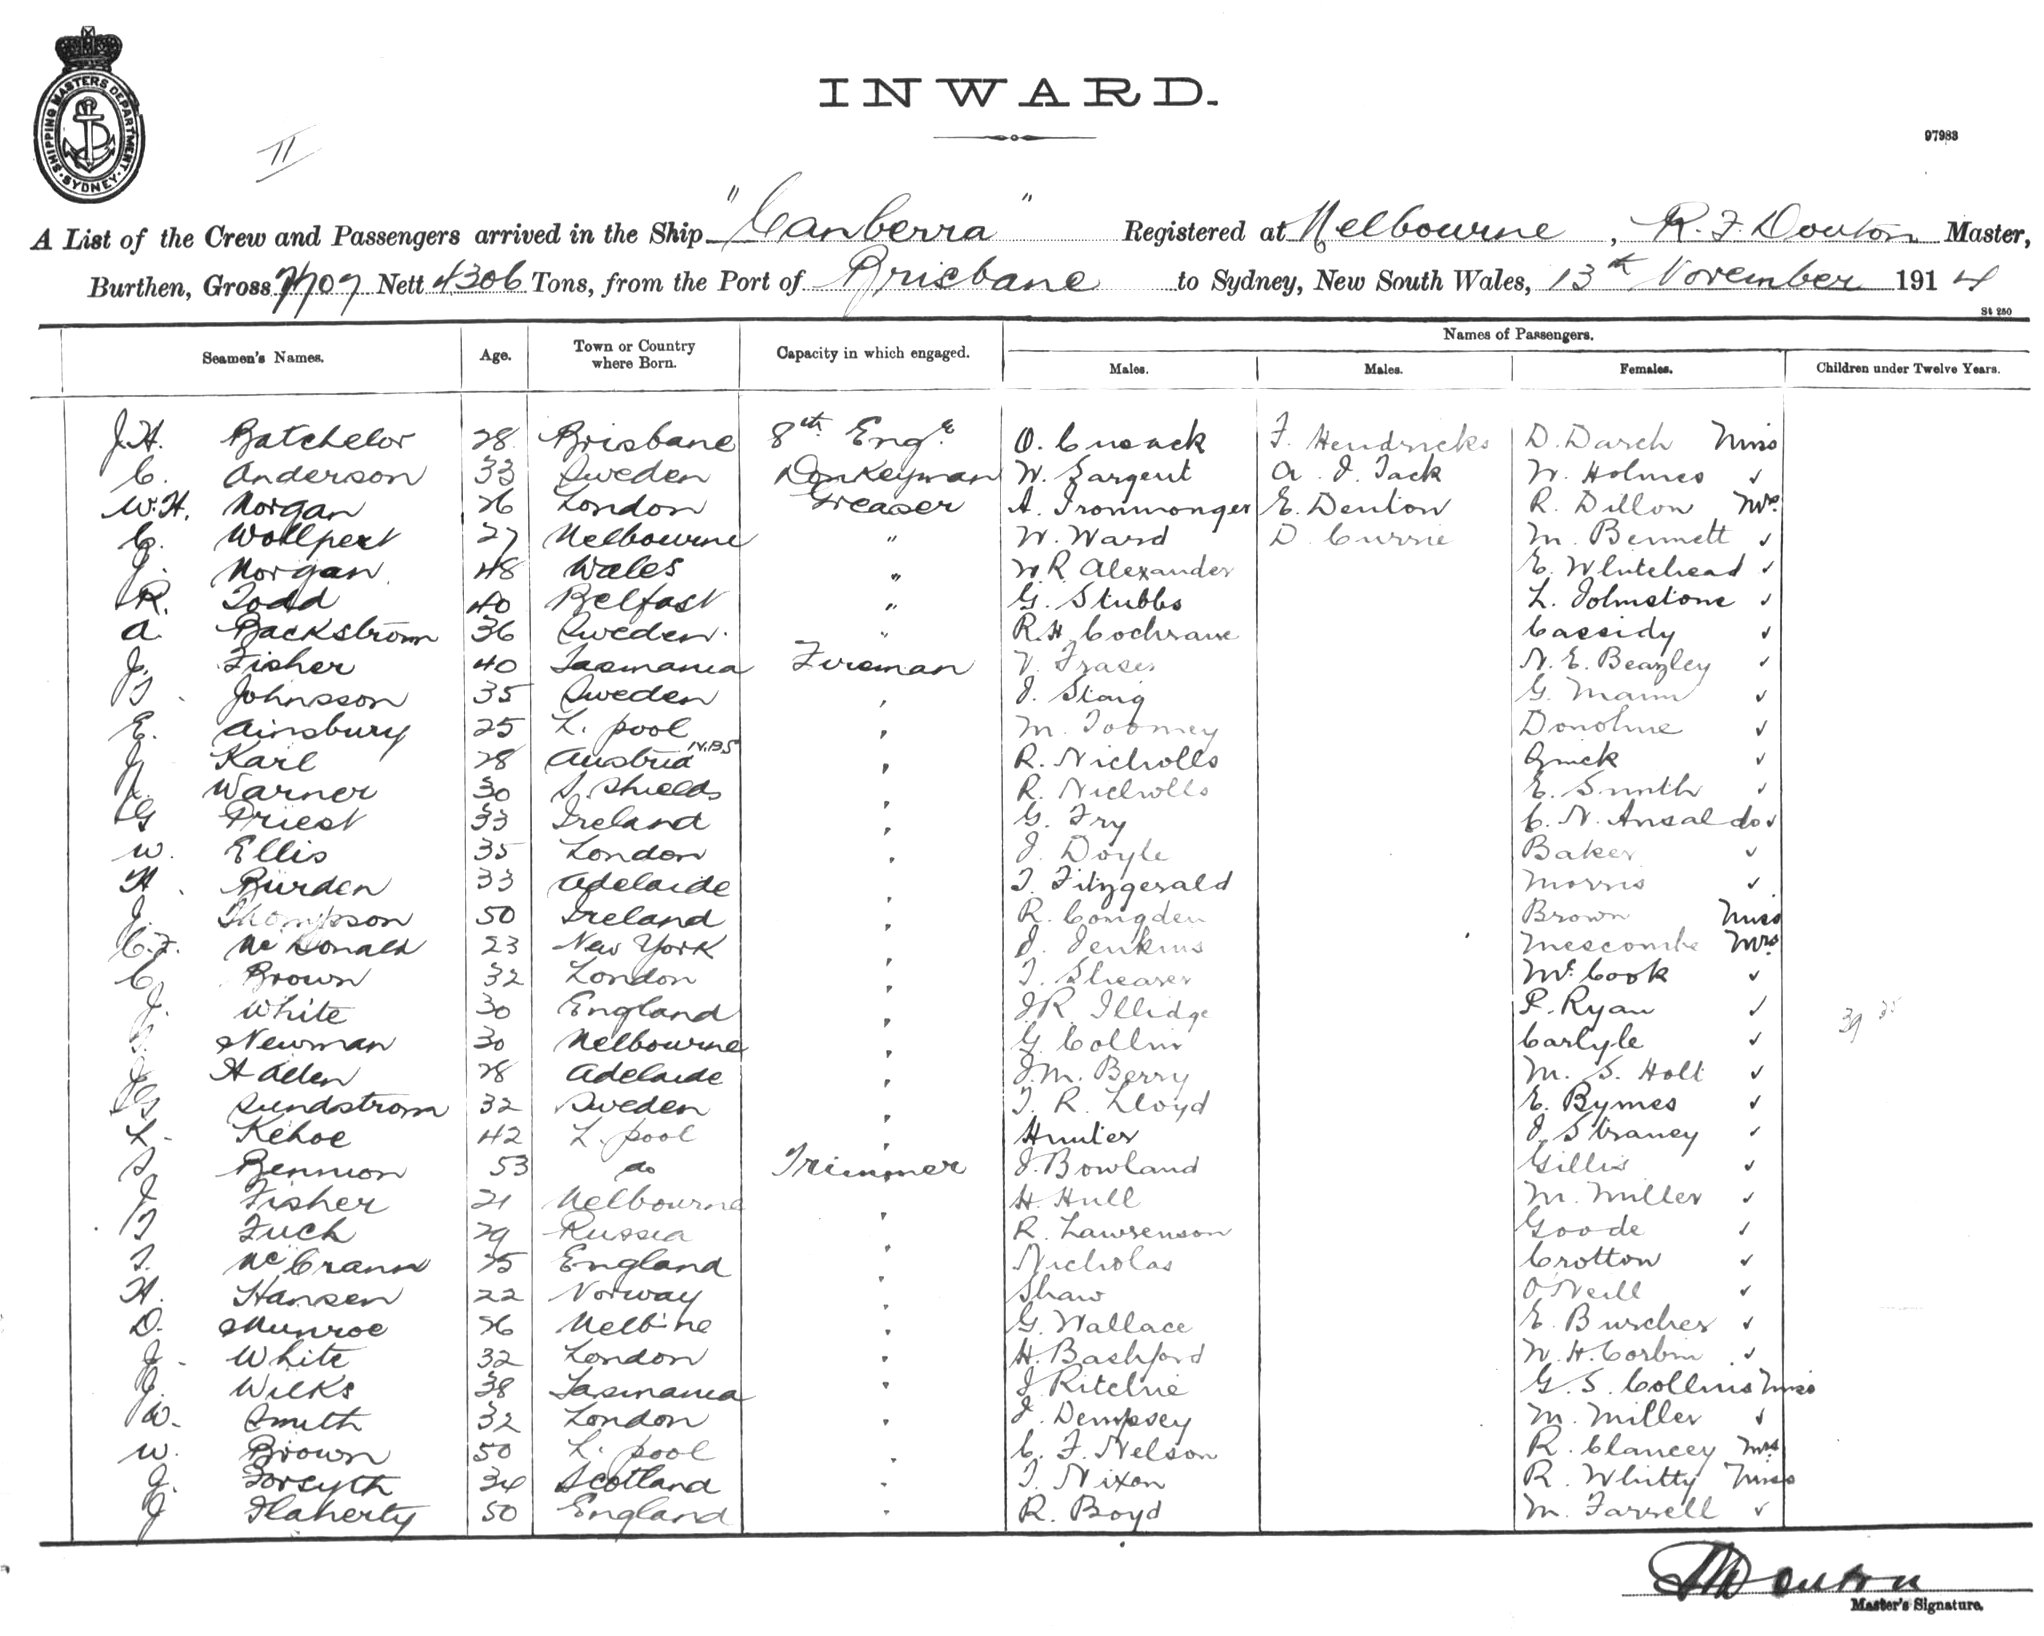 SHIPPING MASTERS DEPARTMENT. SYDNEY.
II
INWARD.
97983
A List of the Crew and Passengers arrived in the Ship "Canberra" Registered at Melbourne, R. F. Douton Master,
Burthen, Gross 7707 Nett 4306 Tons, from the Port of Brisbane to Sydney, New South Wales, 13th November 1914
St 250
Seamen's Names. Age. Town or Country where Born. Capacity in which engaged. Names of Passengers.
Males. Males. Females. Children under Twelve Years.
J.H. Batchelor 28 Brisbane 8th Engr O. Cusack F. Hendricks D. Darch Miss
C. Anderson 33 Sweden Donkeyman W. Sargent A. J. Jack W. Holmes ✓
W.H. Morgan 26 London Greaser A. Ironmonger E. Denton R. Dillon Mrs.
C. Wollpert 27 Melbourne " W. Ward D. Currie M. Bennett ✓
J. Morgan 48 Wales " W.R. Alexander E. Whitehead ✓
R. Todd 40 Belfast " G. Stubbs L. Johnstone ✓
A. Backstrom 36 Sweden " R.H. Cochrane Cassidy ✓
J. Fisher 40 Tasmania Fireman V. Fraser N. E. Beazley ✓
Johnsson 35 Sweden " J. Staig G. Mann ✓
E. Ainsbury 25 L. pool " M. Toomey Donohue ✓
J. Karl 28 Austria N.B.S " R. Nicholls Quick ✓
Warner 30 S. Shields " R. Nicholls E. Smith ✓
G Priest 33 Ireland " G. Fry C. N. Ansaldo ✓
W. Ellis 35 London " J. Doyle Baker ✓
H. Burden 33 Adelaide " T. Fitzgerald Morris ✓
J. Thompson 50 Ireland " R. Congden Brown Miss
C.F. McDonald 23 New York " J. Jenkins Mescombe Mrs
C Brown 32 London " T. Shearer McCook ✓
J. White 30 England " J.R. Illidge P. Ryan ✓
Newman 30 Melbourne " G. Collin Carlyle ✓
H Allen 28 Adelaide " J.M. Berry M. S. Holt ✓
G Sundstrom 32 Sweden " T. R. Lloyd E. Byrnes ✓
L. Kehoe 42 L. pool " Hunter J. Straney ✓
S. Bennion 53 do Trimmer J. Bowland Gillis ✓
J Fisher 21 Melbourne " H. Hull M. Miller ✓
T Fuch 29 Russia " R. Lawrenson Goode ✓
T. McCrann 25 England " Nicholas Crotton ✓
H. Hansen 22 Norway " Shaw O'Neill ✓
D. Munroe 26 Melb-ne " G. Wallace E. Burcher ✓
J. White 32 London " H. Bashford W. H. Corbin ✓
J. Wilks 38 Tasmania " J Ritchie G. S. Collins Miss
W. Smith 32 London " J. Dempsey M. Miller ✓
W. Brown 50 L. pool " C. F. Nelson R. Clancey Mrs
J. Forsyth 34 Scotland " T. Nixon R. Whitty Miss
J Flaherty 50 England " R. Boyd M. Farrell ✓
Douton
Master's Signature.